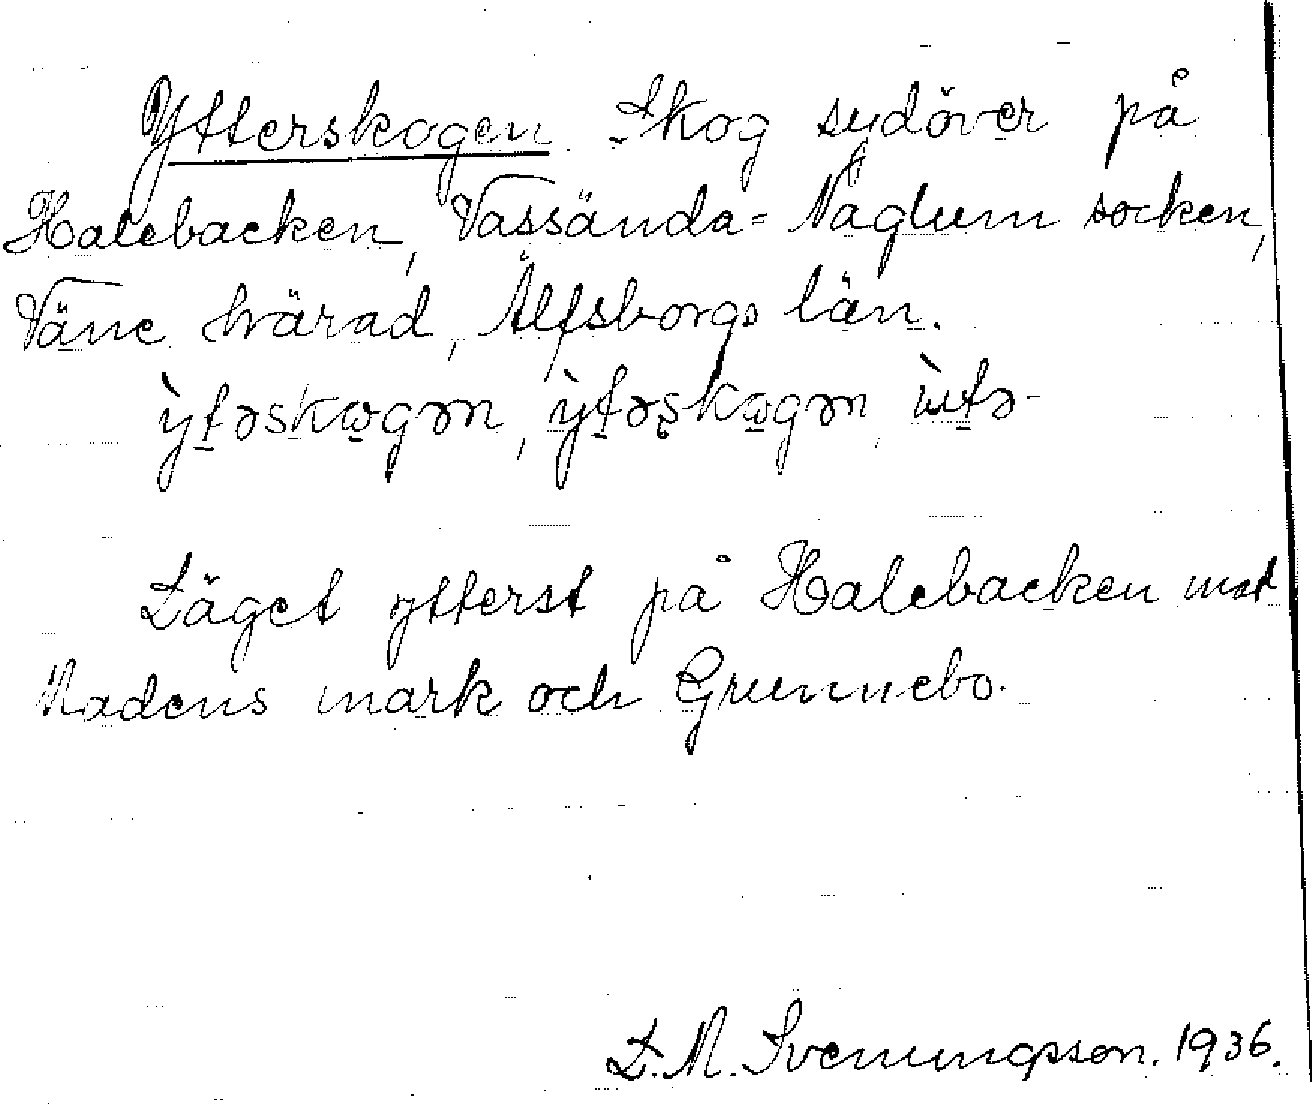 Ytterskogen. Skog sydöver på
Halebacken, Vassända-Naglum socken,
Väne härad, Älfsborgs län.
ỳtəskωgən, ỳtəʂkωgən, ùtə-
Läget ytterst på Halebacken mot
Nadens mark och Grunnebo.
D. M. Svenungsson. 1936.